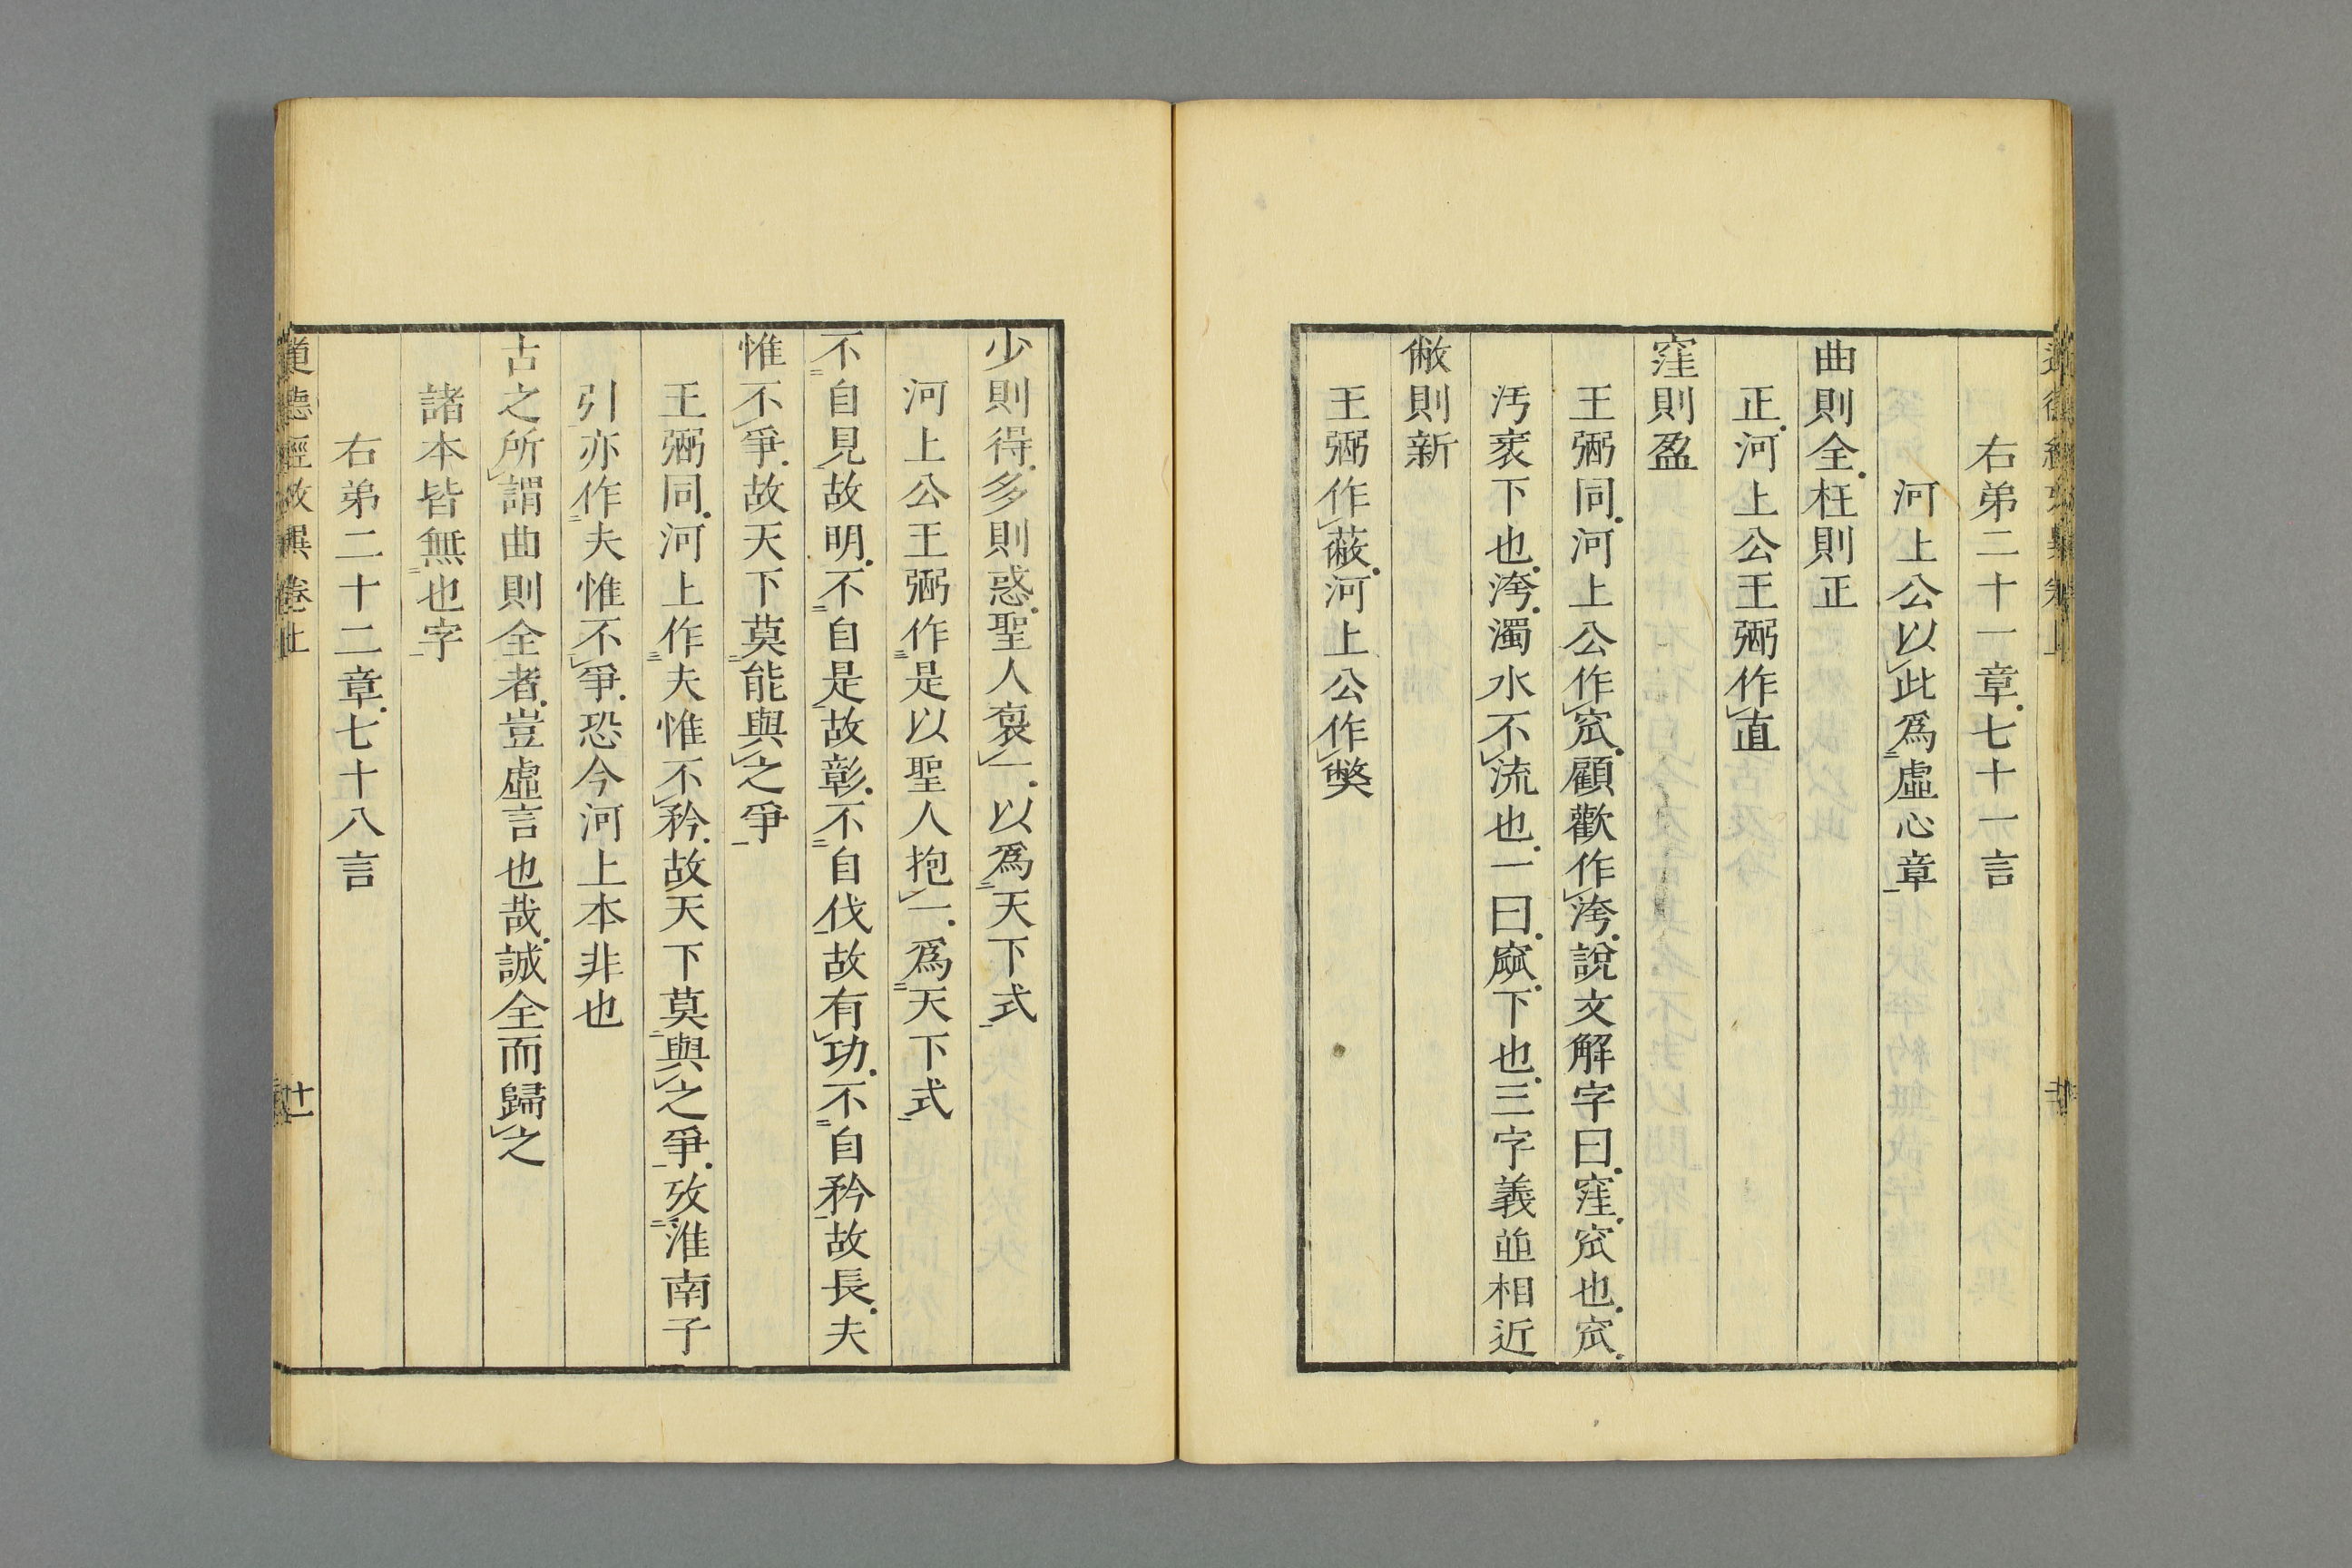 右弟二十一章七十一言
河上公以此爲虛心章
曲則全枉則正
正河上公王弼作直
窪則盈
王弼同河上公作窊顧歡作洿說文解字曰窪窊也窊
汚衺下也洿濁水不流也一曰窳下也三字義並相近
敝則新
王弼作蔽河上公作獘
少則得多則惑聖人裒一以爲天下式
河上公王弼作是以聖人抱一爲天下式
不自見故明不自是故彰不自伐故有功不自矜故長夫
惟不爭故天下莫能與之爭
王弼同河上作夫惟不矜故天下莫與之爭攷淮南子
引亦作夫惟不爭恐今河上本非也
古之所謂曲則全者豈虛言也哉誠全而歸之
諸本皆無也字
右弟二十二章七十八言
道德經攷異卷上 十一